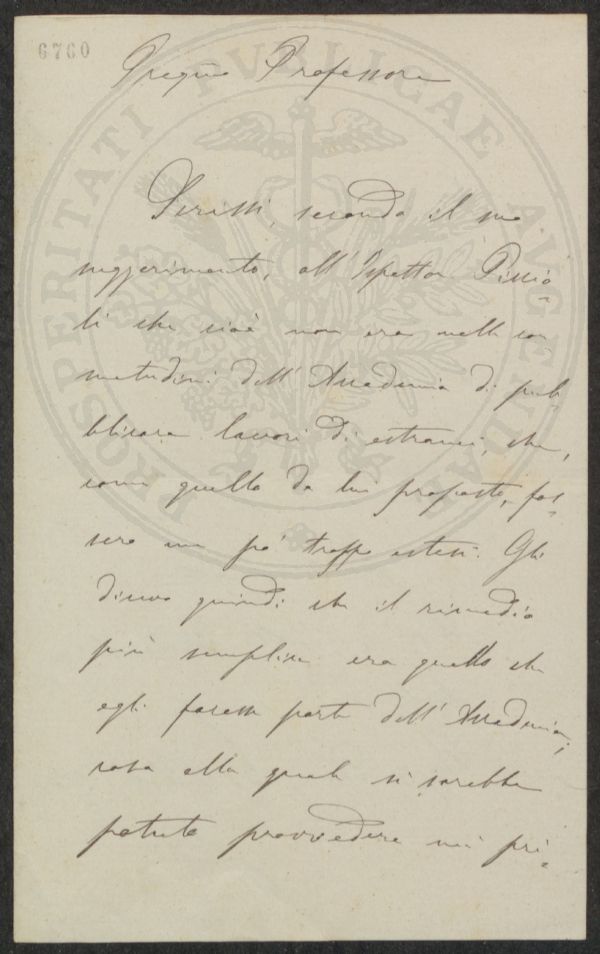 6760
PROSPERITATI PUBLICAE AUGENDAE
Pregmo Professore
Scrissi, secondo il suo
suggerimento, all'Ispettor Piccio-
li che cioè non era nelle con
suetudini dell'Accademia di pub-
blicare lavori di estranei, che,
come quello da lui proposto, fos-
sero un po' troppo estesi. Gli
dicevo quindi che il rimedio
più semplice era quello che
egli facesse parte dell'Accademia,
cosa alla quale si sarebbe
potuto provvedere nei pri-